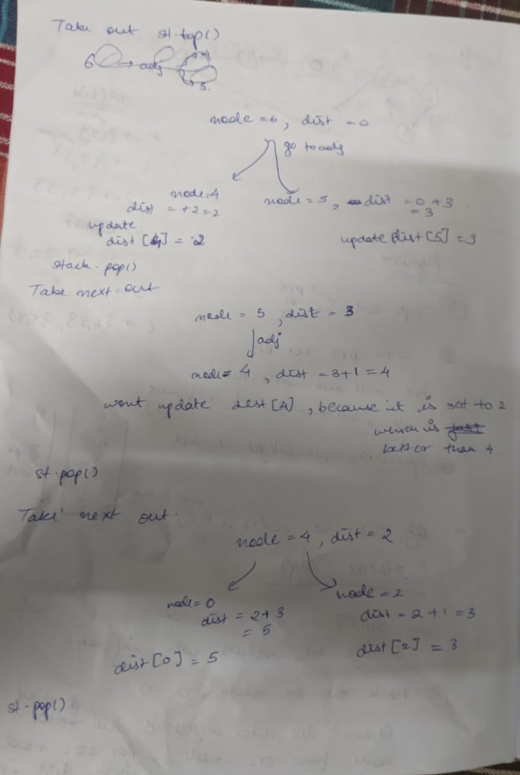 Take out st.top()
6 → adj
5
node = 6, dist = 0
go to adj
node=4
dist = +2=2
update
dist[4] = 2
node = 5, dist = 0+3
= 3
update dist[5] = 3
stack.pop()
Take next out
node = 5, dist = 3
adj
node= 4, dist = 3+1 = 4
wont update dist[4], because it is set to 2
which is
better than 4
st.pop()
Take next out.
node = 4, dist = 2
node=0
dist = 2+3
= 5
dist[0] = 5
node = 2
dist = 2+1 = 3
dist[2] = 3
st.pop()